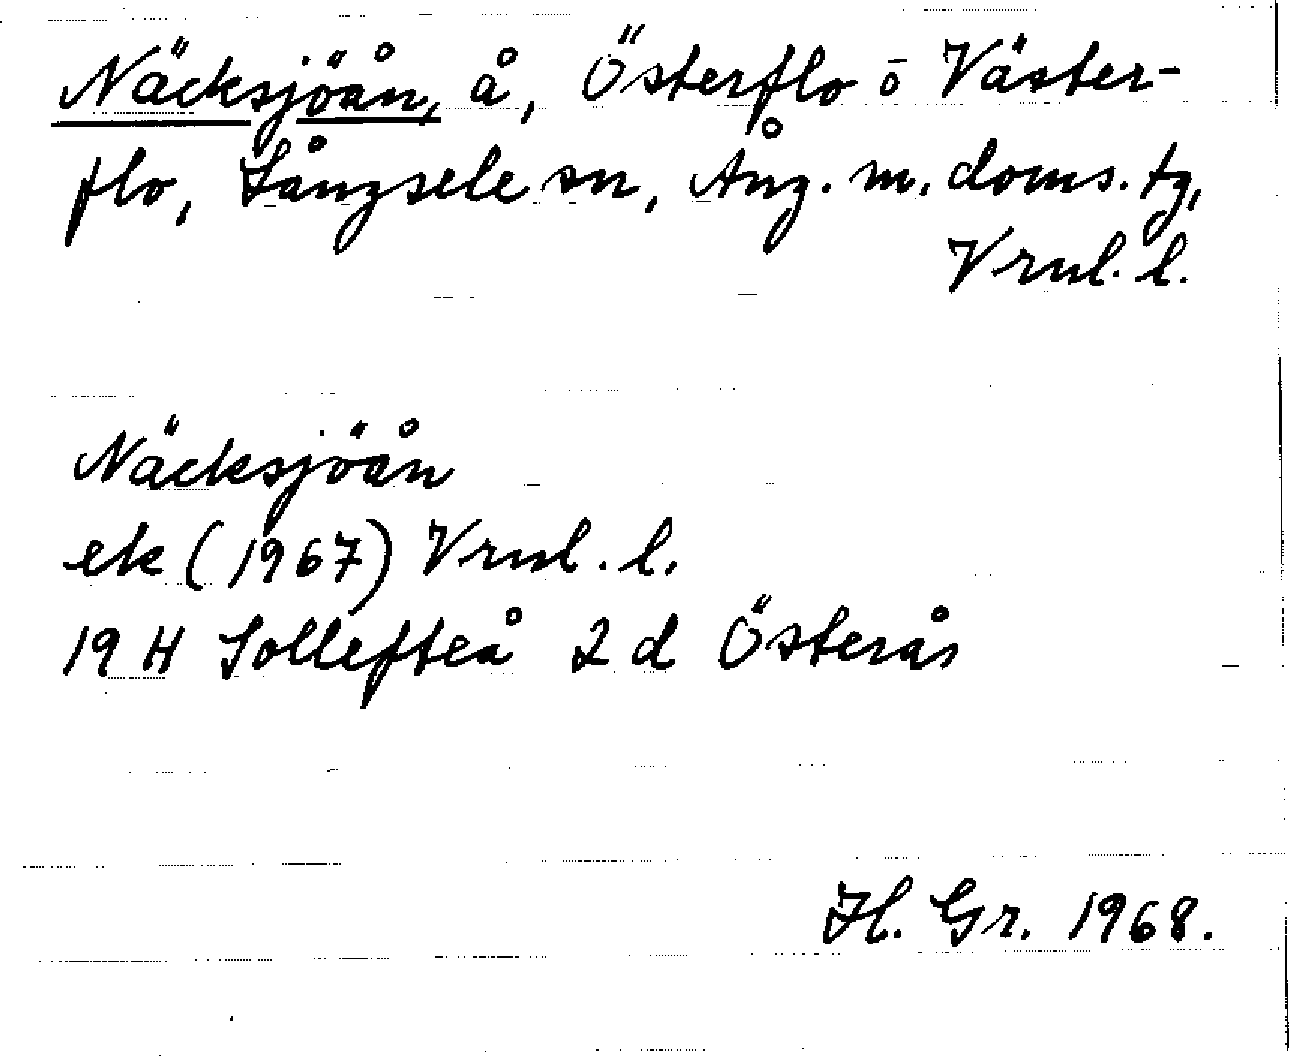 Näcksjöån, å, Österflo ō Väster-
flo, Långsele sn, Ång. m. doms. tg,
Vrnl. l.
Näcksjöån
ek (1967) Vrnl. l.
19 H Sollefteå 2 d Österås
Hl. Gr. 1968.